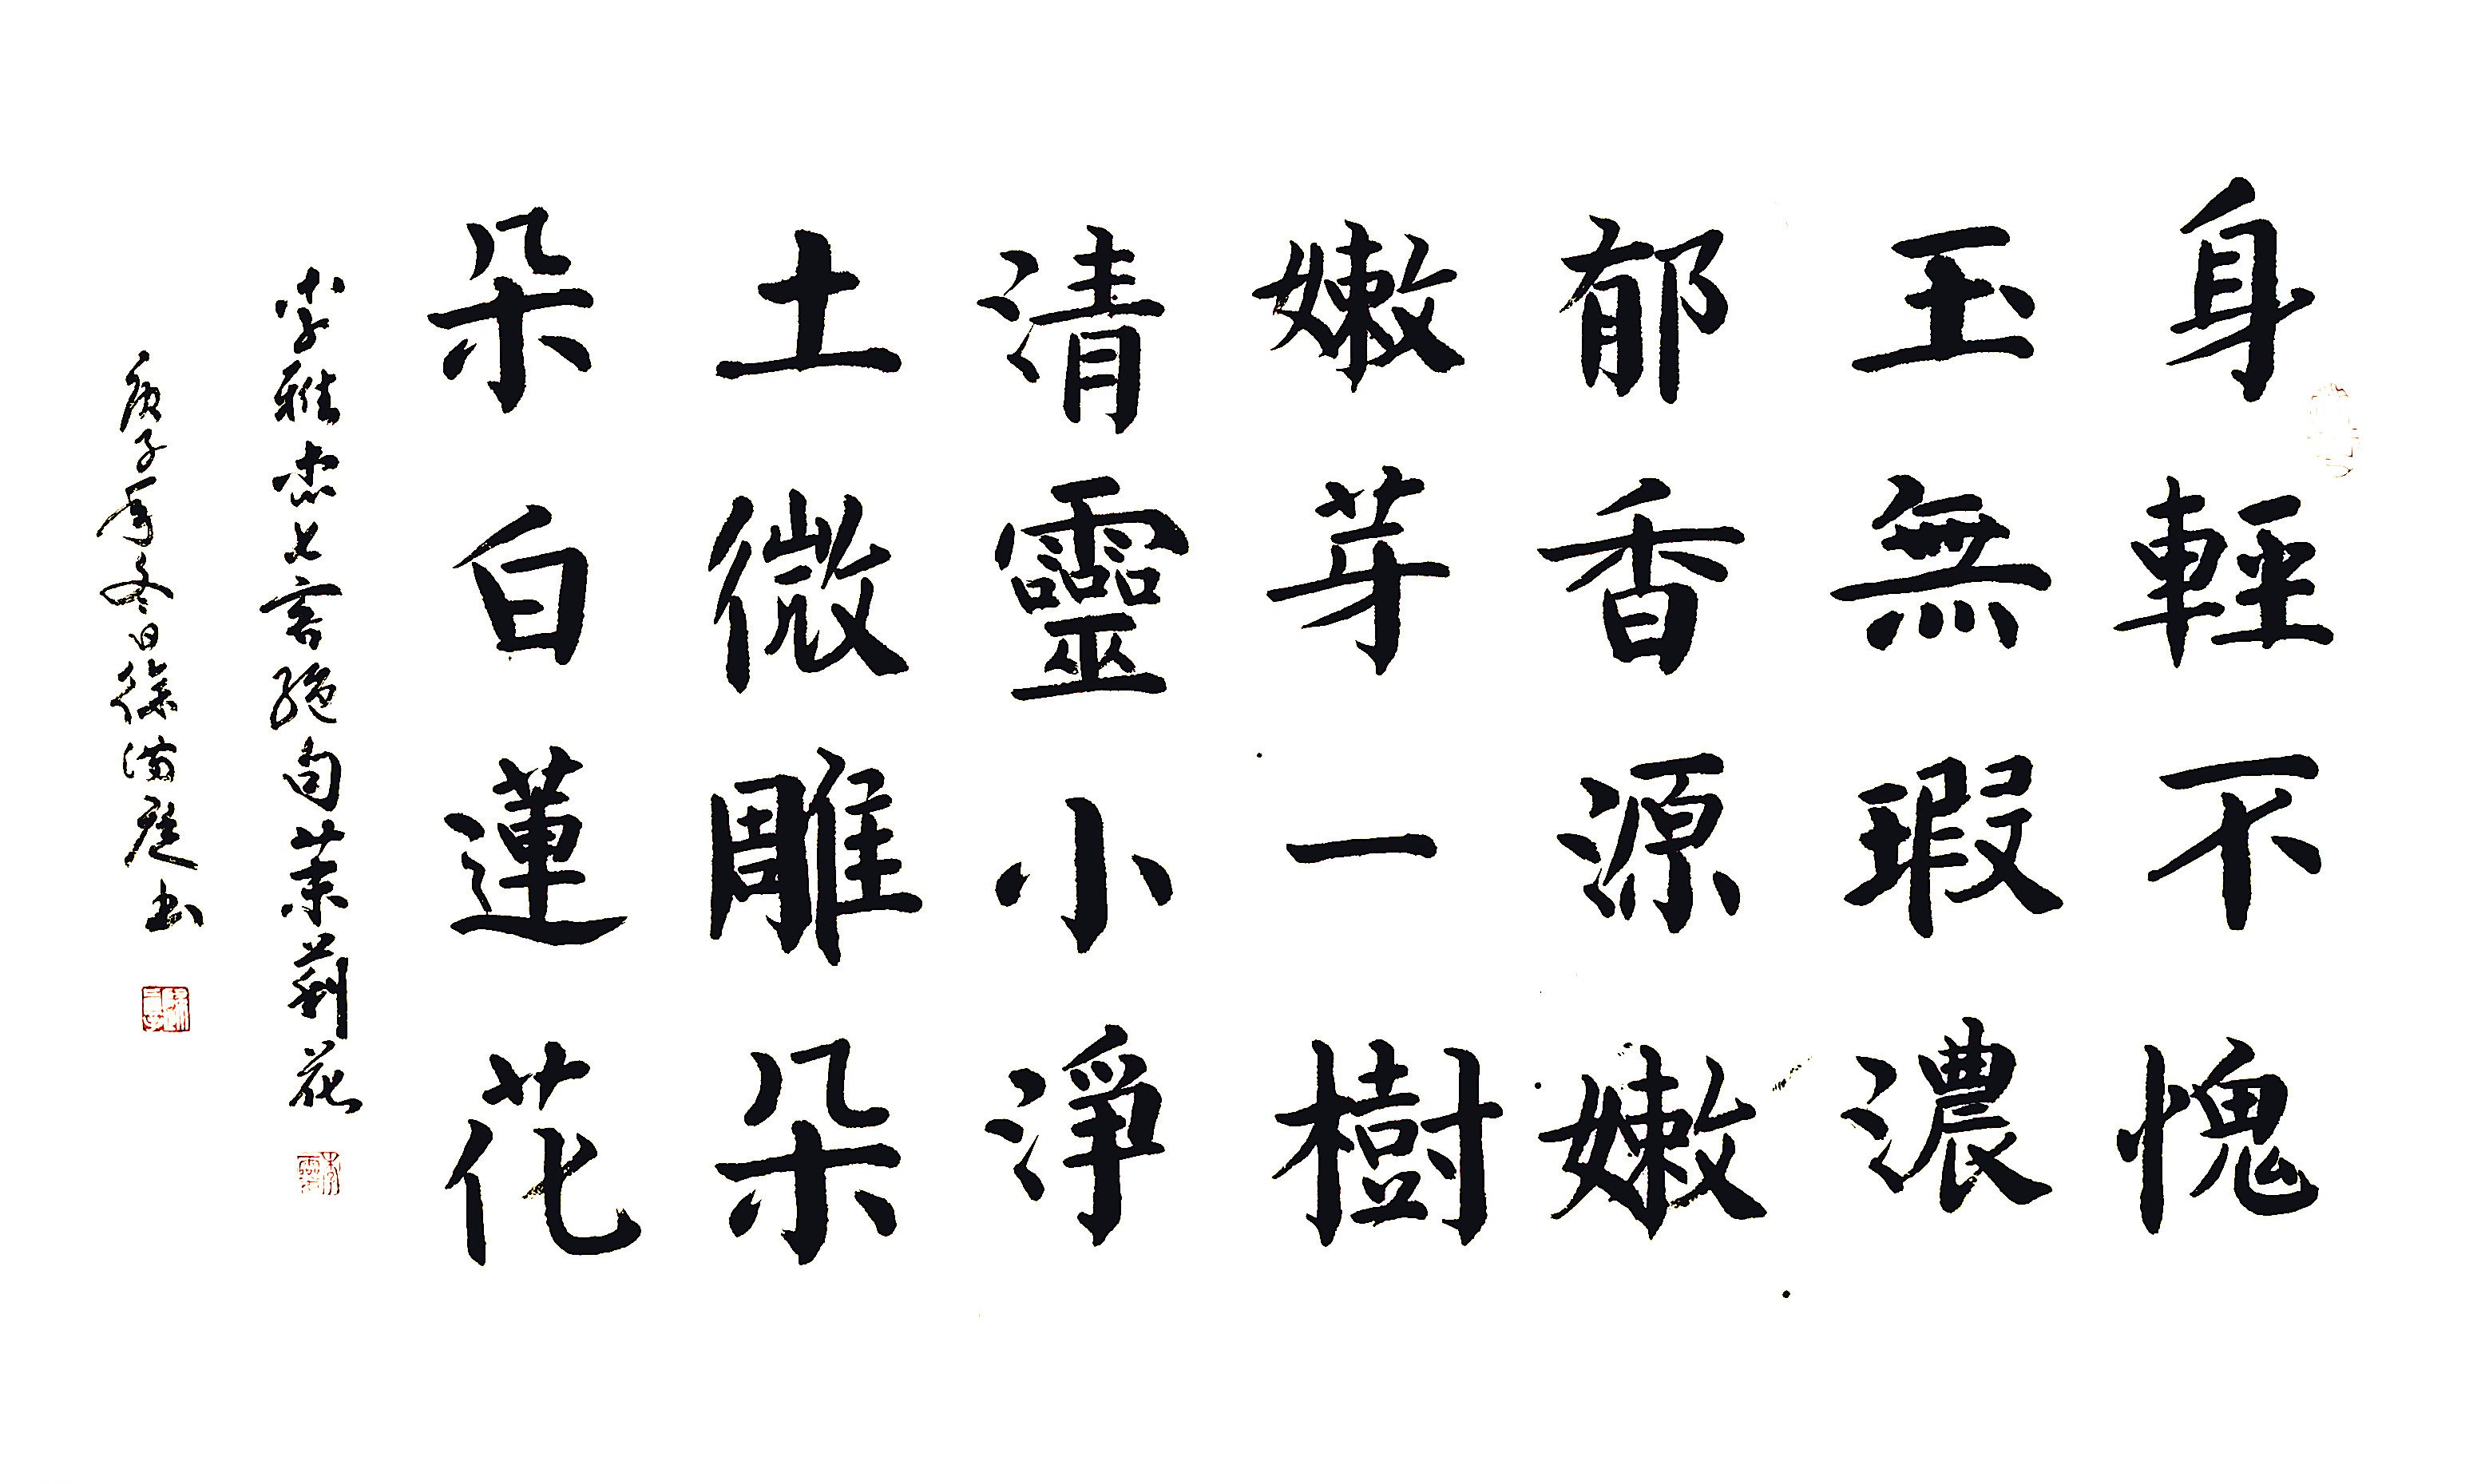 身輕不愧
玉無瑕濃
郁香源嫩
嫩芽一樹
清靈小淨
土微雕朵
朵白蓮花
李雅杰七言絕句茉莉花
庚子年冬日徐满庭书